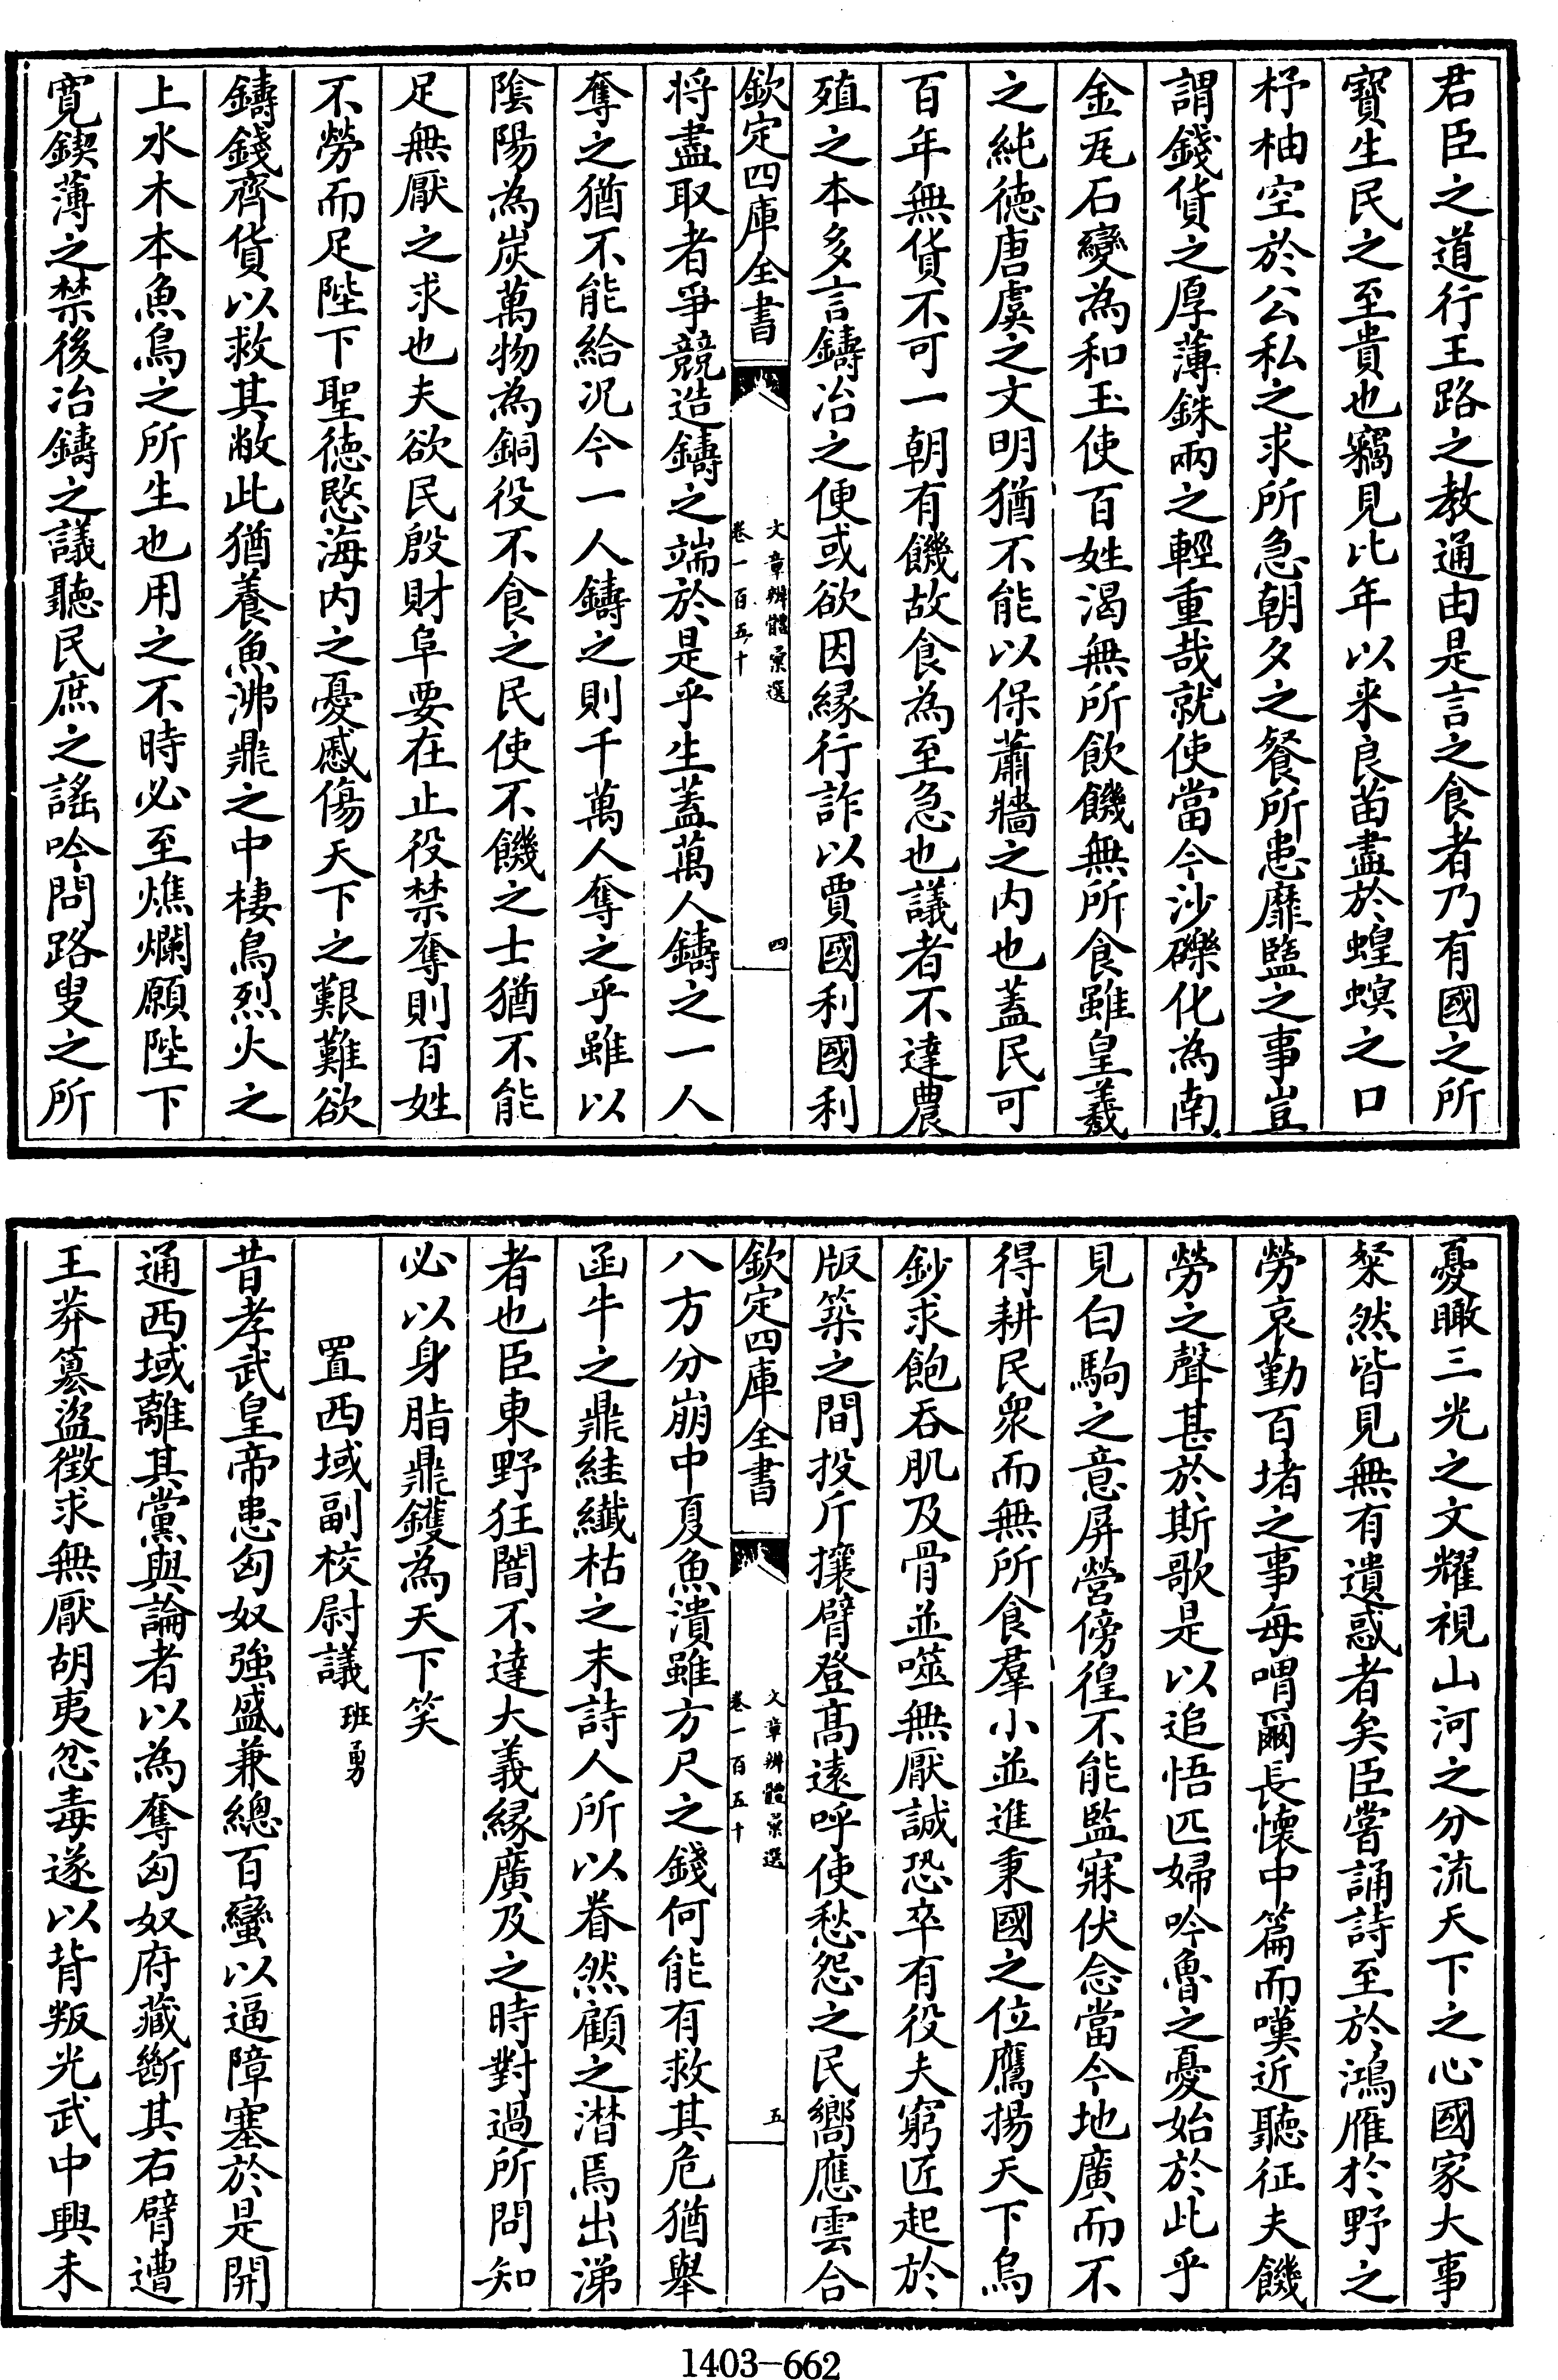 君臣之道行王路之教通由是言之食者乃有國之所
寳生民之至貴也竊見比年以来良苗盡於蝗螟之口
杼柚空於公私之求所急朝夕之餐所患靡盬之事豈
謂錢貨之厚薄銖兩之輕重哉就使當今沙礫化為南
金瓦石變為和玉使百姓渴無所飲饑無所食雖皇羲
之純徳唐虞之文明猶不能以保蕭牆之内也蓋民可
百年無貨不可一朝有饑故食為至急也議者不達農
殖之本多言鑄冶之便或欲因縁行詐以賈國利國利
欽定四庫全書
文章辨體彙選
卷一百五十
四
将盡取者爭競造鑄之端於是乎生蓋萬人鑄之一人
奪之猶不能給況今一人鑄之則千萬人奪之乎雖以
陰陽為炭萬物為銅役不食之民使不饑之士猶不能
足無厭之求也夫欲民殷財阜要在止役禁奪則百姓
不勞而足陛下聖徳愍海内之憂慼傷天下之艱難欲
鑄錢齊貨以救其敝此猶養魚沸鼎之中棲鳥烈火之
上水木本魚鳥之所生也用之不時必至燋爛願陛下
寛鍥薄之禁後冶鑄之議聽民庶之謠吟問路叟之所
憂瞰三光之文耀視山河之分流天下之心國家大事
粲然皆見無有遺惑者矣臣嘗誦詩至於鴻雁於野之
勞哀勤百堵之事每喟爾長懷中篇而嘆近聽征夫饑
勞之聲甚於斯歌是以追悟匹婦吟魯之憂始於此乎
見白駒之意屏營傍徨不能監寐伏念當今地廣而不
得耕民衆而無所食羣小並進秉國之位鷹揚天下烏
鈔求飽吞肌及骨並噬無厭誠恐卒有役夫窮匠起於
版築之間投斤攘臂登髙逺呼使愁怨之民嚮應雲合
欽定四庫全書
文章辨體彙選
卷一百五十
五
八方分崩中夏魚潰雖方尺之錢何能有救其危猶舉
函牛之鼎絓纎枯之末詩人所以眷然顧之潜焉出涕
者也臣東野狂闇不達大義縁廣及之時對過所問知
必以身脂鼎鑊為天下笑
置西域副校尉議 班勇
昔孝武皇帝患匈奴強盛兼總百蠻以逼障塞於是開
通西域離其黨與論者以為奪匈奴府藏斷其右臂遭
王莽簒盜徴求無厭胡夷忿毒遂以背叛光武中興未
1403-662